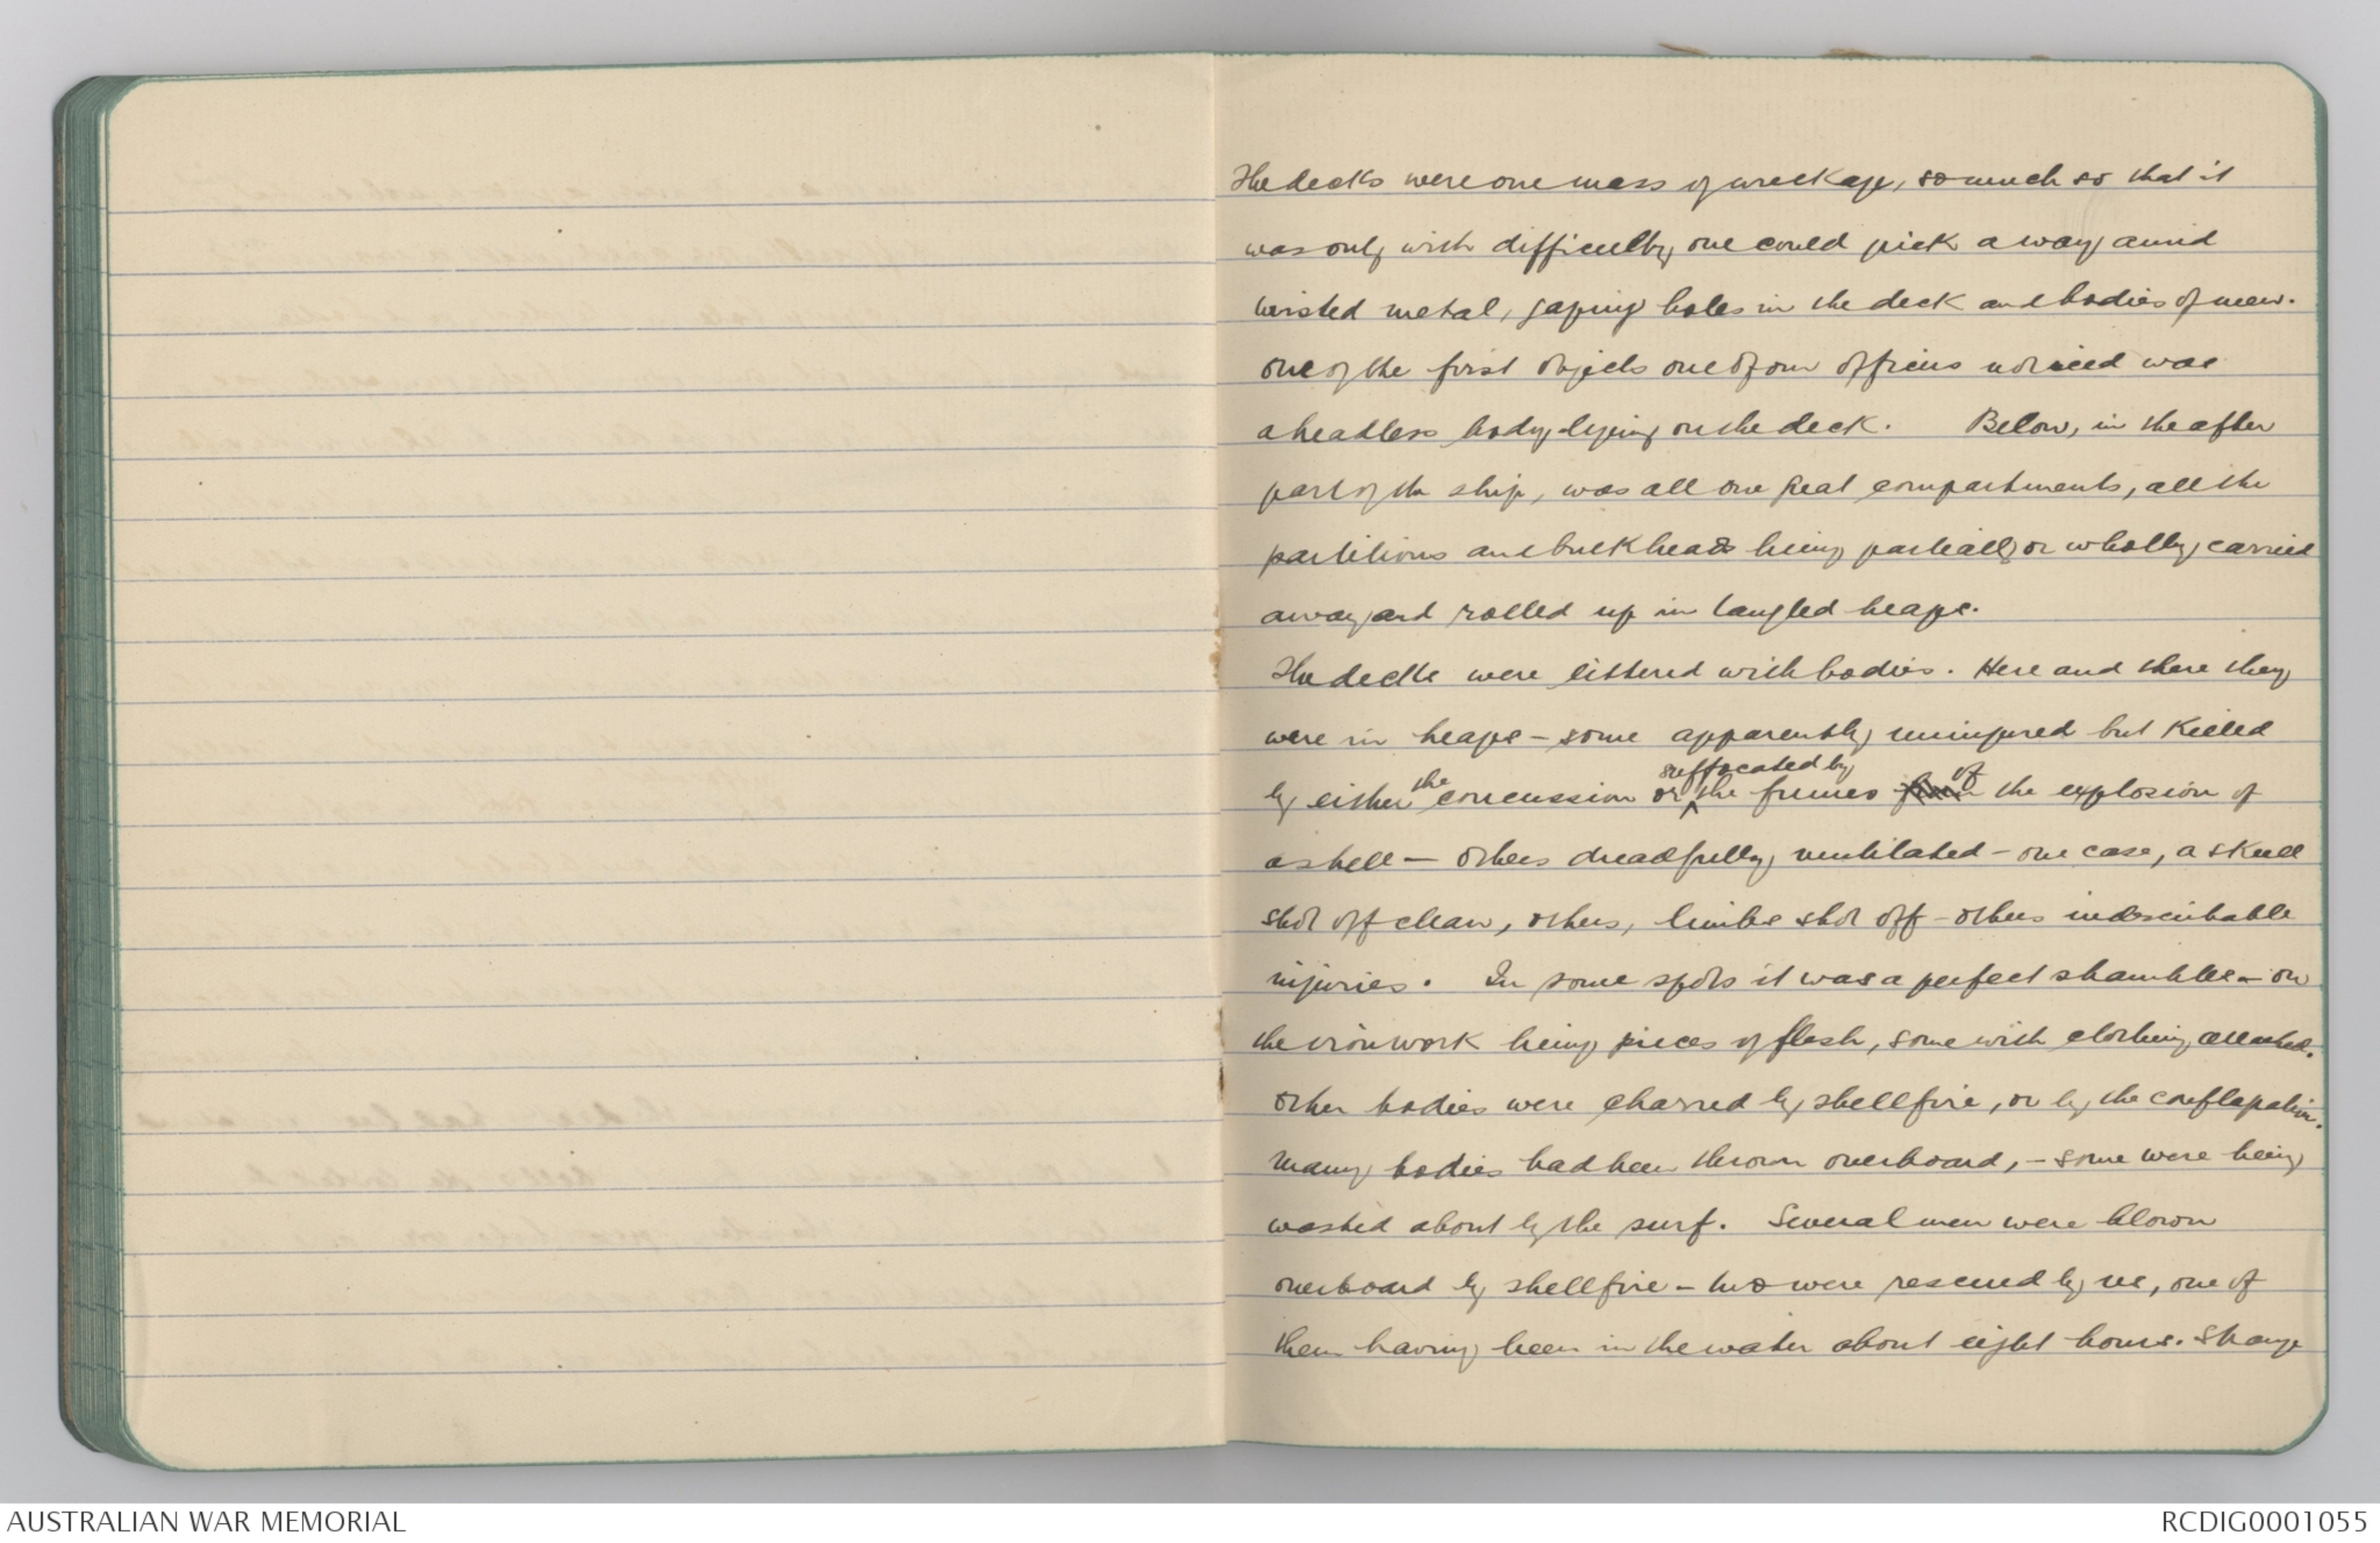 The decks were one mass of wreckage, so much so that it
was only with difficulty one could pick a way amid
twisted metal, gaping holes in the deck and bodies of men.
one of the first objects one of our officers noticed was
a headless body lying on the deck. Below, in the after
part of the ship, was all one great compartments, all the
partitions and bulkheads being partially or wholly carried
away and rolled up in tangled heaps.
The decks were littered with bodies. Here and there they
were in heaps – some apparently uninjured but killed
suffocated by
by either the concussion or the fumes of the explosion of
a shell — others dreadfully mutilated – one case, a skull
shot off clean, others, limbs shot off – others indescribable
injuries. In some spots it was a perfect shambles – on
the ironwork being pieces of flesh, some with clothing attached.
Other bodies were charred by shellfire, or by the conflagration.
Many bodies had been thrown overboard, – some were being
washed about by the surf. Several men were blown
overboard by shellfire – two were rescued by us, one of
them having been in the water about eight hours. Strange
AUSTRALIAN WAR MEMORIAL
RCDIG0001055